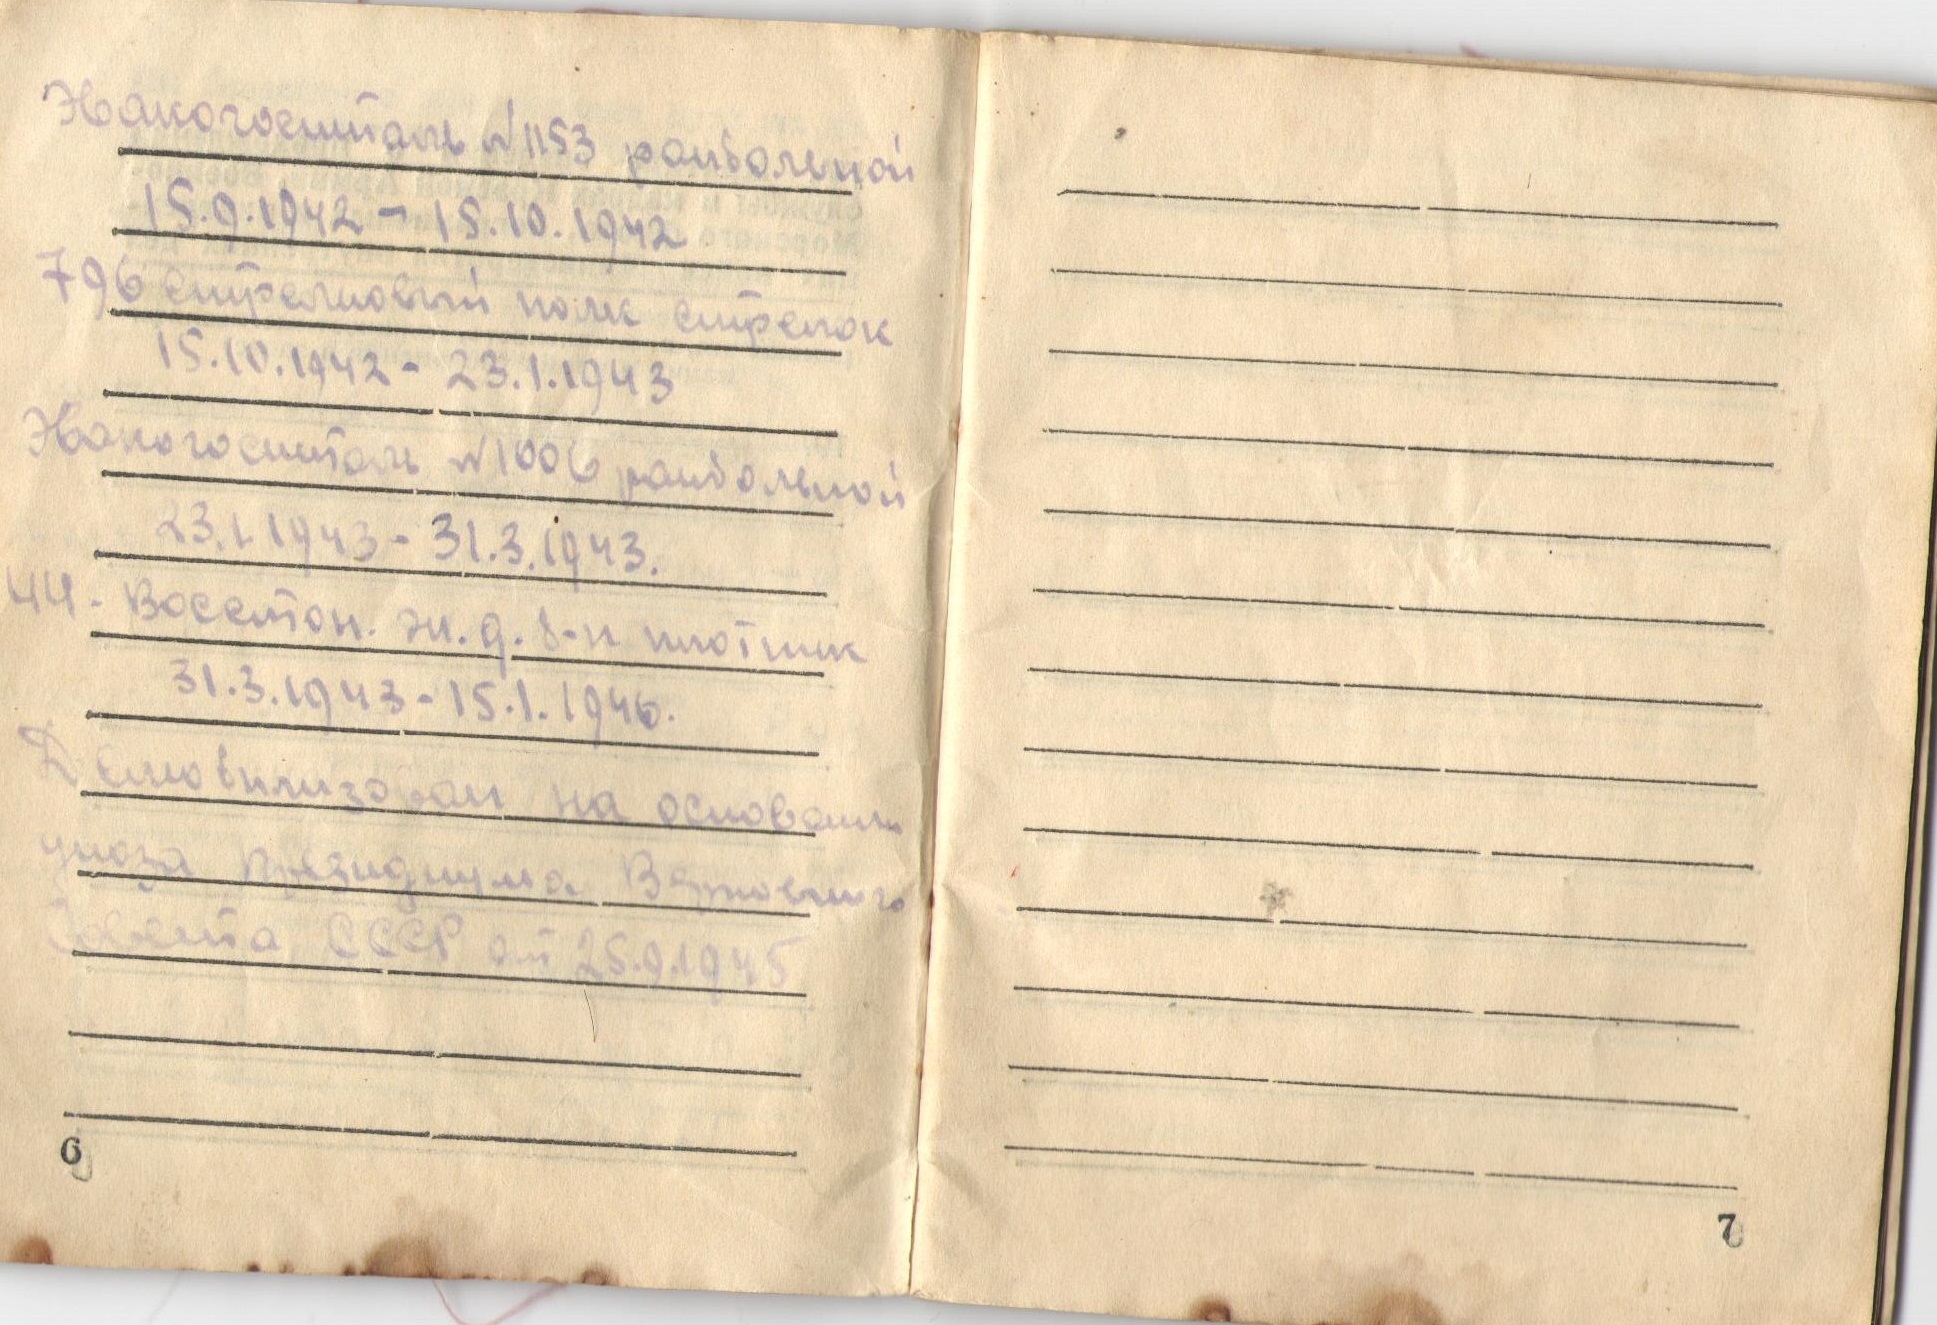 Эвакогоспиталь №1153 ранбольной
15.9.1942 - 15.10.1942
796 стрелковый полк стрелок
15.10.1942 - 23.1.1943
Эвакогоспиталь №1006 ранбольной
23.1.1943 - 31.3.1943.
44 - Восстан. ж.д. б-н плотник
31.3.1943 - 15.1.1946.
Демобилизован на основании
указа Президиума Верховного
Совета СССР от 25.9.1945
6
7